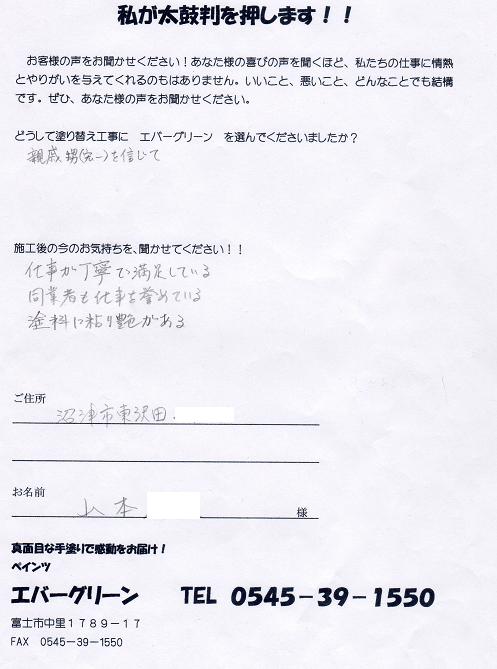 私が太鼓判を押します！！
お客様の声をお聞かせください！あなた様の喜びの声を聞くほど、私たちの仕事に情熱
とやりがいを与えてくれるのもはありません。いいこと、悪いこと、どんなことでも結構
です。ぜひ、あなた様の声をお聞かせください。
どうして塗り替え工事に　エバーグリーン　を選んでくださいましたか？
親戚 甥(宏一)を信じて
施工後の今のお気持ちを、聞かせてください！！
仕事が丁寧で満足している
同業者も仕事を誉めている
塗料に粘り艶がある
ご住所
沼津市東沢田
お名前
山本
様
真面目な手塗りで感動をお届け！
ペインツ
エバーグリーン　TEL 0545－39－1550
富士市中里１７８９－１７
FAX 0545－39－1550